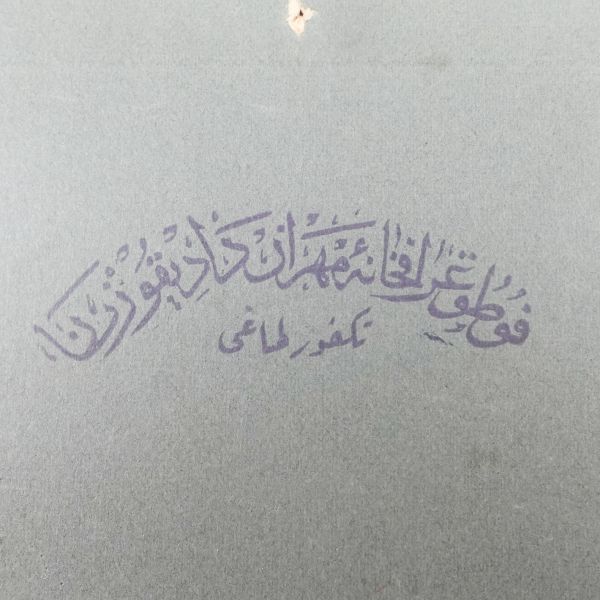 فوطوغرافخانۀ مهران داديقوززن
تكفور طاغى